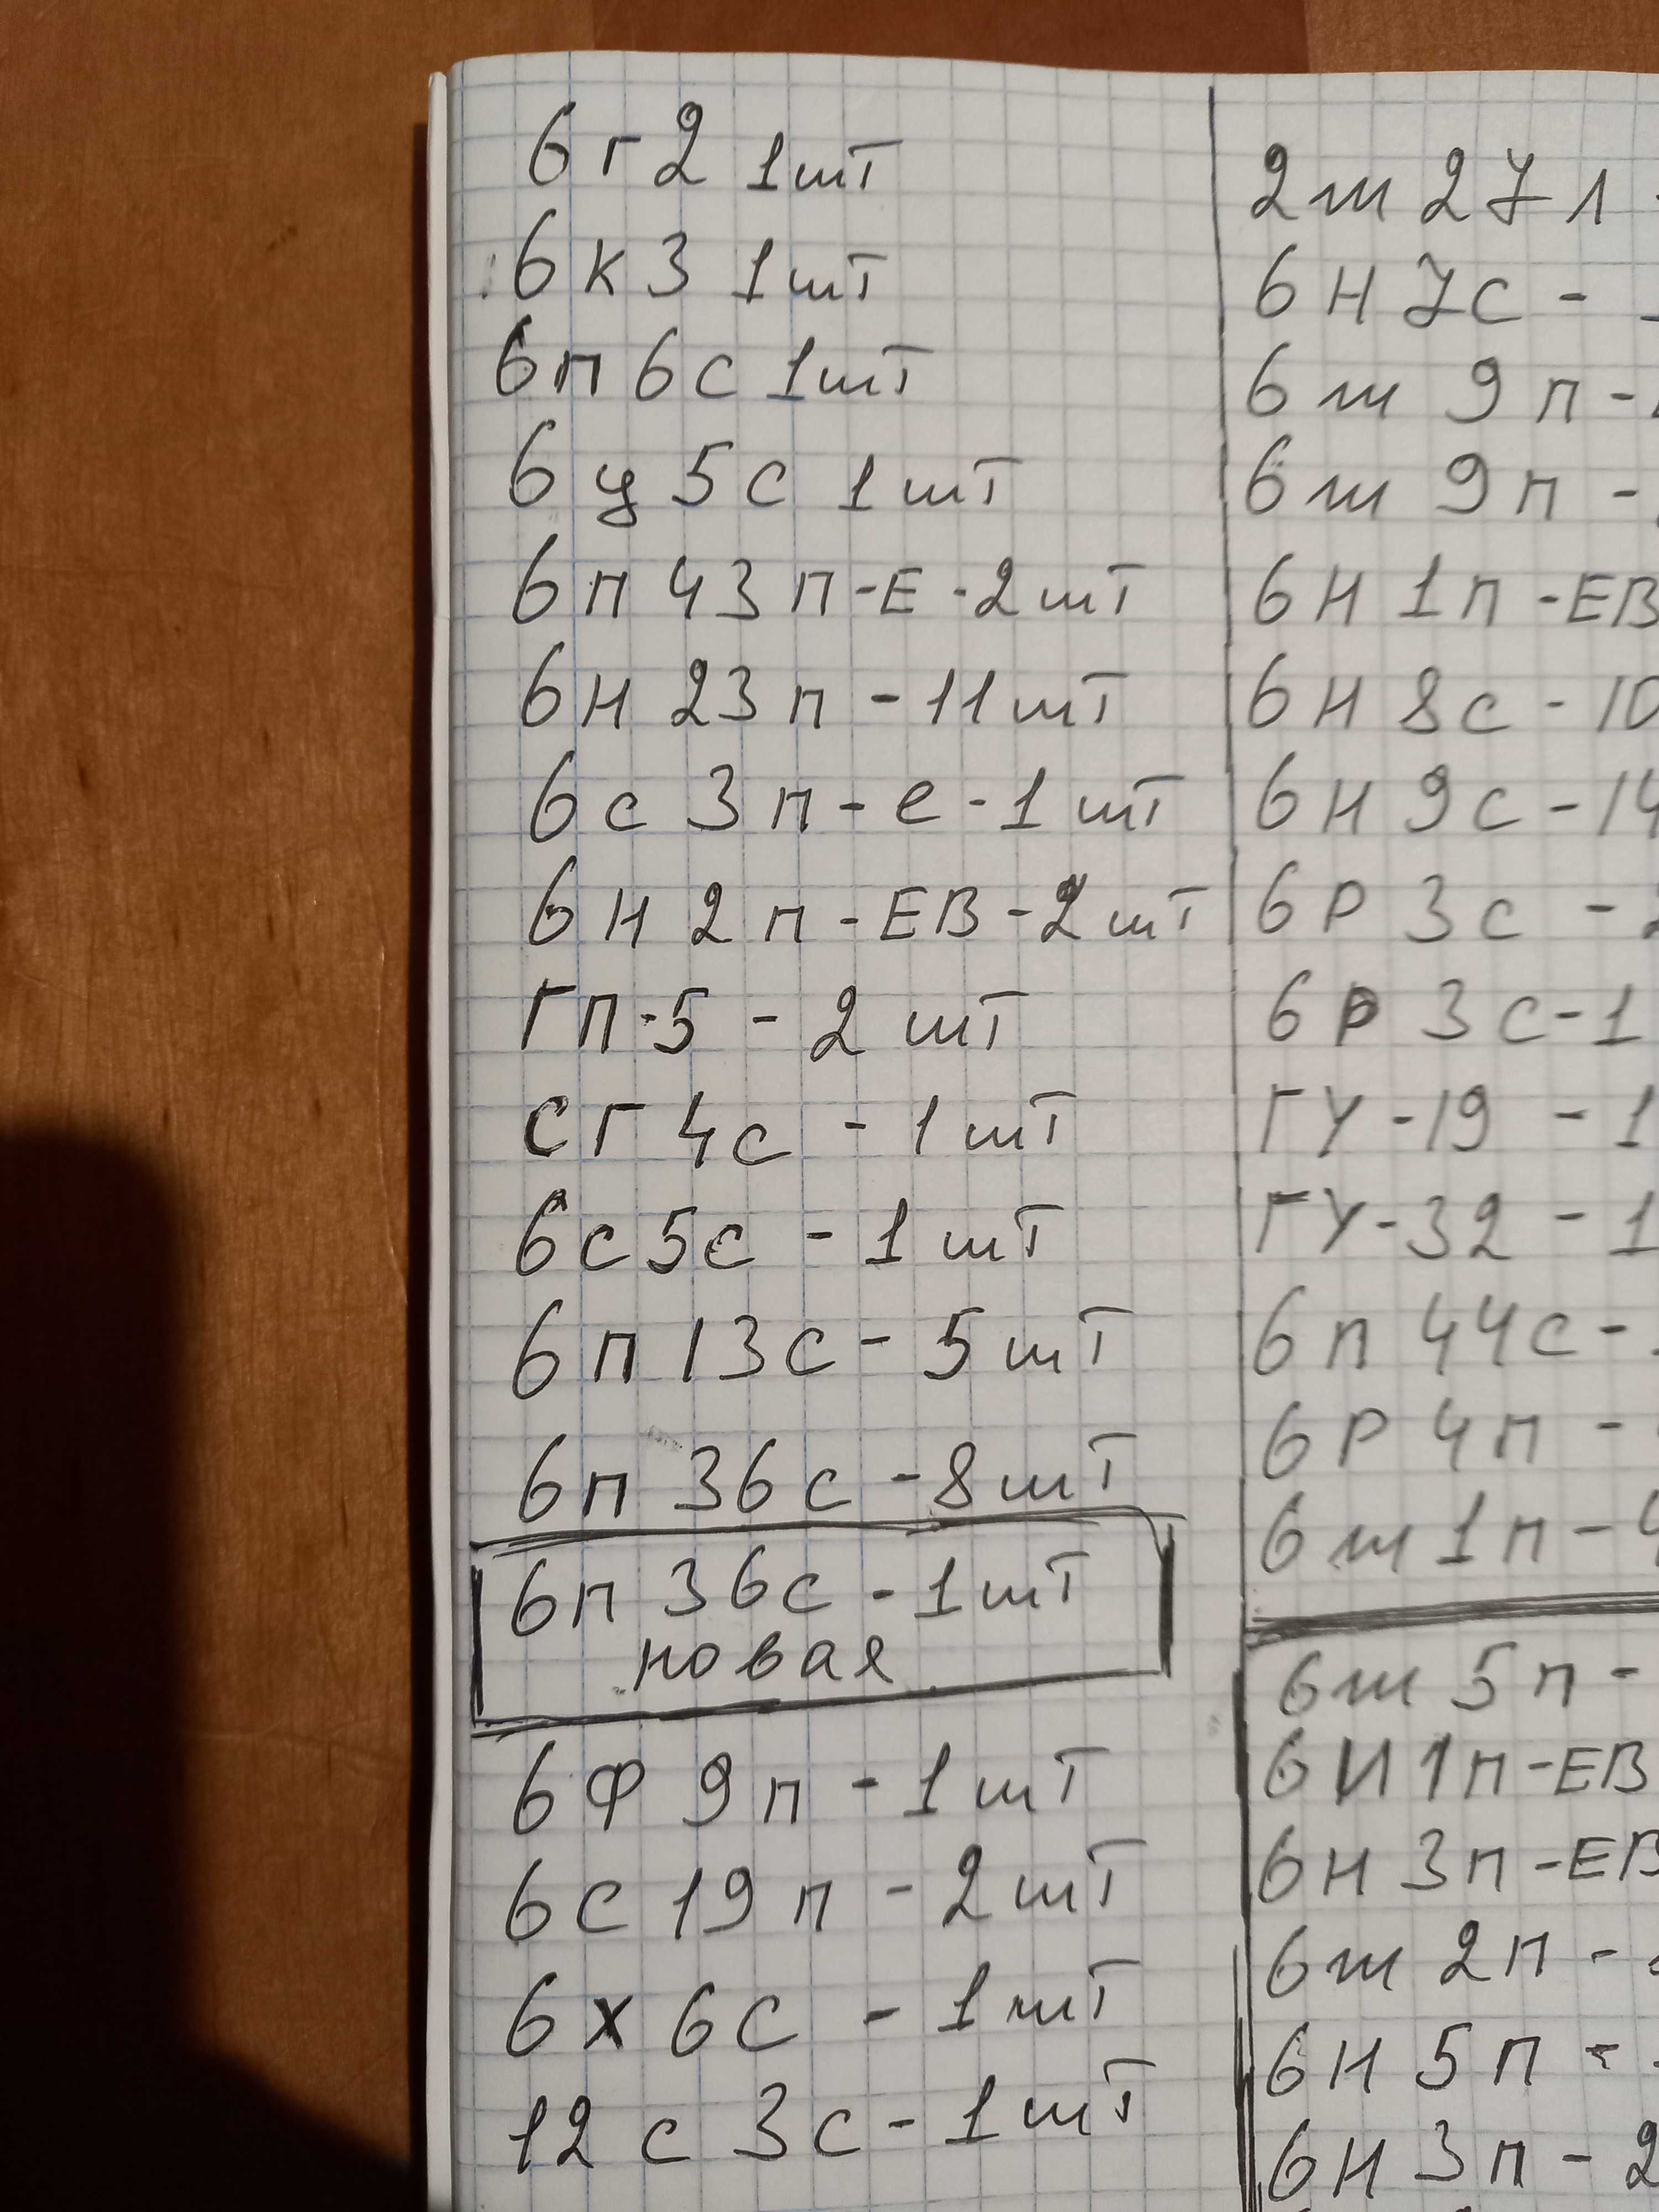 6г2 1шт
6к3 1шт
6п6с 1шт
6ц5с 1шт
6п43п-Е-2шт
6н23п-11шт
6с3п-е-1шт
6н2п-ЕВ-2шт
ГП-5-2шт
СГ4с-1шт
6с5с-1шт
6п13с-5шт
6п36с-8шт
6п36с-1шт
новая
6Ф9п-1шт
6С19п-2шт
6х6С-1шт
12с3с-1шт
2ш27л
6Н7С-
6ш9п-
6ш9п-
6Н1п-ЕВ
6Н8с-10
6Н9с-14
6Р3с-
6Р3с-1
ГУ-19-1
ГУ-32-1
6п44с-
6Р4п-
6ш1п-4
6ш5п-
6И1п-ЕВ
6Н3п-ЕВ
6ш2п-
6Н5п-
6Н3п-2